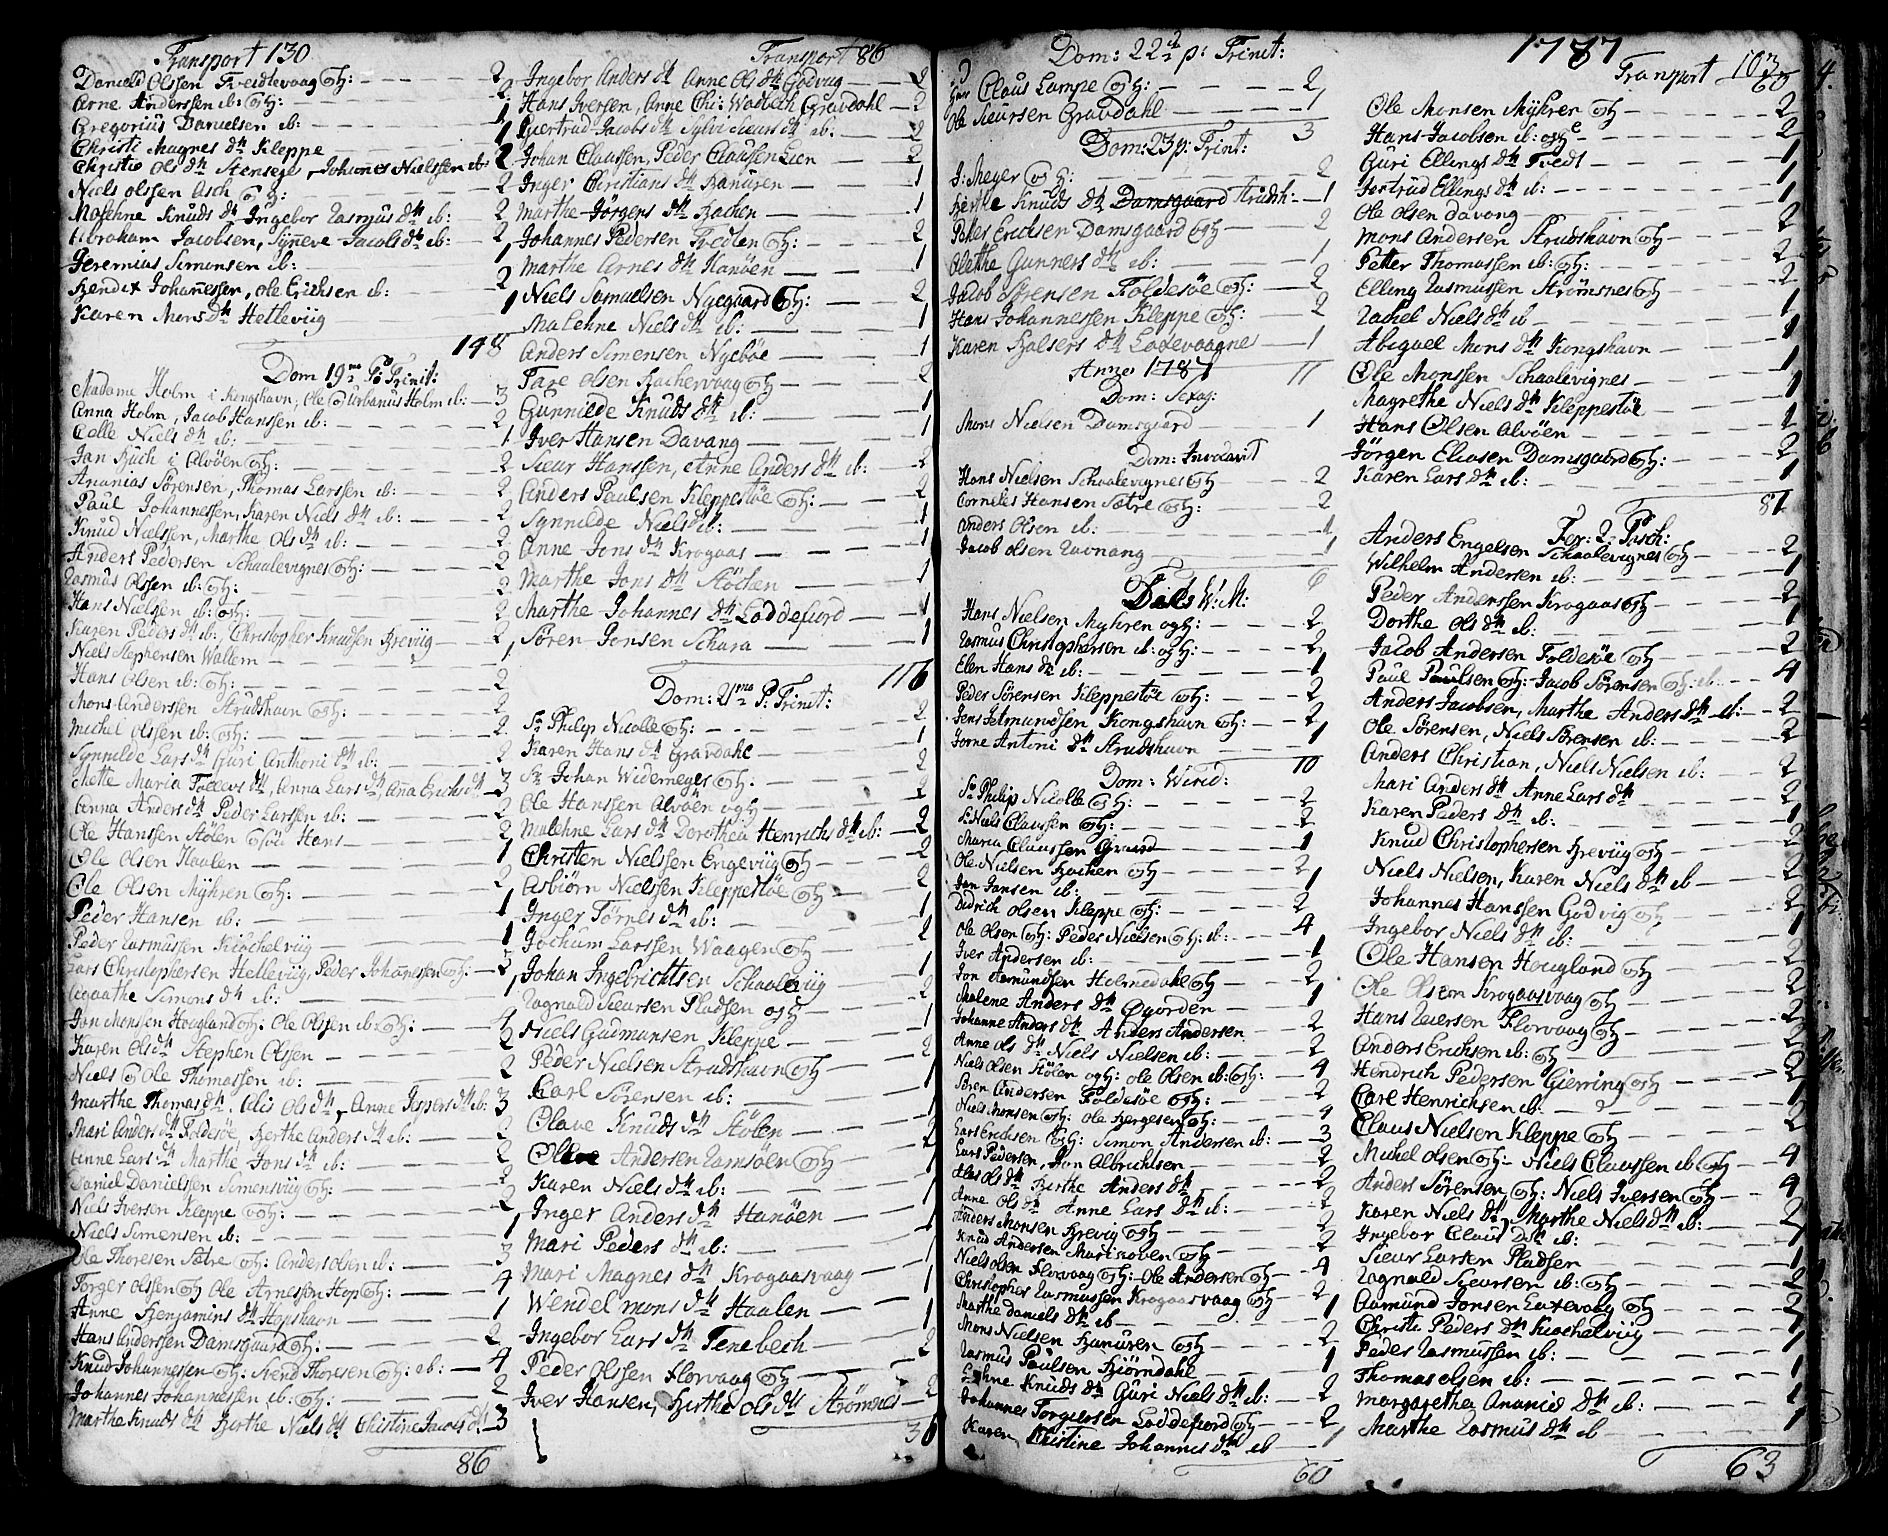 Transport 130
Daniel Olssen Tveidtevaag og h: 2
Arne Anderssen ib: og h: 2
Gregorius Danielsen ib: 1
Christi Magnes dtr Kleppe 1
Christi Ols dtr Stensege, Johannes Nielssen ib: 2
Niels Olssen Asch og h: 2
Malehne Knuds dtr Ingebor Rasmus dtr ib: 2
Abraham Jacobsen, Synneve Jacobs dtr ib: 2
Jeremias Simonsen ib: 1
Bendix Johannessen, Ole Erichsen ib: 2
Karen Mons dtr Hetleviig 1
148
Dom 19de P: Trinit:
Madame Holm i Kongshavn, Ole og Urbanus Holm ib: 3
Anna Holm, Jacob Hanssen ib: 2
Calle Niels dtr ib: 1
Jan Buch i Alvöen og h: 2
Ananias Sörensen, Thomas Larssen ib: 2
Paul Johannessen, Karen Niels dtr ib: 2
Knud Nielssen, Marthe Ols dtr ib: 2
Anders Pedersen Schaalevignes og h: 2
Rasmus Olssen ib: og h: 2
Hans Nielsen ib: og h: 2
Karen Peders dtr ib:, Christopher Knudsen Breviig 2
Niels Stephensen Wallem 1
Hans Olsen ib: og h: 2
Mons Anderssen Strudshavn og h: 2
Michel Olssen ib: og h: 2
Synnilde Lars dtr Guri Anthoni dtr ib: 2
Mette Maria Follers dtr, Anna Lars dtr, Ana Erichs dtr 3
Anna Anders dtr Peder Larssen ib: 2
Ole Hanssen Stölen og sön Hans 2
Ole Olsen Haalen 1
Ole Olsen Myhren og h: 2
Peder Hansen ib: 1
Peder Rasmussen Kiöchelviig 1
Lars Christophersen Helleviig, Peder Johannessen og h: 3
Agaathe Simons dtr ib: 1
Jon Monssen Hougland og h: Ole Olssen ib: og h: 4
Karen Ols dtr Stephen Olssen 2
Niels og Ole Thomassen ib: 2
Marthe Thomas dtr, Alis Ols dtr, Anne Jespers dtr ib: 3
Mari Anders dtr Foldesöe, Berthe Anders dtr ib: 2
Anne Lars dtr Marthe Jons dtr ib: 2
Daniel Danielssen Simensviig og h: 2
Niels Iversen Kleppe og h: 2
Niels Simensen ib: 1
Ole Thoresen Sætre og h: Anders Olsen ib: 3
Torger Olssen og h Ole Arnessen Hop og h: 4
Anne Benjamins dtr Hopshavn 1
Hans Anderssen Damsgaard og h: 2
Knud Johannessen og h: Svend Thoresen og h: ib: 4
Johannes Johannessen ib: og h: 2
Marthe Knuds dtr Berthe Niels dtr Christine Jacobs dtr 3
86
Transport 86
Ingebor Anders dtr Anne Ols dtr Godvig 2
Hans Iversen, Anne Chr: Wadbech Gravdahl 2
Giertrud Jacobs dtr Sylvi Sieurs dtr ib: 2
Johan Claussen, Peder Claussen Lien 2
Inger Christians dtr Hanuren 1
Marthe Jörgens dtr Bachen 1
Johannes Pedersen Tvedten og h: 2
Marthe Arnes dtr Hanöen 1
Niels Samuelsen Nygaard og h: 2
Malehne Niels dtr ib: 1
Anders Simensen Nyeböe 1
Tare Olsen Bachervaag og h 2
Gunnilde Knuds dtr ib: 1
Iver Hansen Davang 1
Sieur Hanssen, Anne Anders dtr ib: 2
Anders Paulsen Kleppestöe og h: 2
Synnilde Niels dtr ib: 1
Anne Jons dtr Krogaas 1
Marthe Jons dtr Stöchen 1
Marthe Johannes dtr Loddefiord 1
Sören Jonsen Schara 1
116
Dom: 21me P: Trinit:
Sr Philip Nicolle og h: 2
Karen Hans dtr Gravdahl 1
Sr Johan Widemeyer og h: 2
Ole Hanssen Alvöen og h: 2
Malehne Lars dtr Dorothea Henrichs dtr ib: 2
Christen Nielssen Engeviig og h 2
Asbiörn Nielssen Kleppestöe og h 2
Inger Törres dtr ib: 1
Jochum Larssen Waagen og h 2
Johan Ingebrichtsen Schaaleviig 1
Ragnald Sieursen Pladsen og h 2
Niels Gudmunsen Kleppe 1
Peder Nielsen Strudshavn og h 2
Karl Sörensen ib: 1
Olave Knuds dtr Stölen 1
Andersen Ramsöen og h 2
Karen Niels dtr ib: 1
Inger Anders dtr Hanöen 1
Mari Peders dtr ib: 1
Mari Magnes dtr Krogaasvaag 1
Wendel Mons dtr Haalen 1
Ingebor Lars dtr Tenebech 1
Peder Olssen Florvaag og h 2
Iver Hansen, Berthe Ols dtr Strömsnes 2
36
Dom: 22de p: Trinit:
Claus Lampe og h: 2
Ole Sieursen Gravdahl 1
3
Dom: 23 p: Trint:
J: Meyer og h: 2
Berthe Knuds dtr Damsgaard Strudsh: 1
Peter Erichsen Damsgaard og h 2
Olethe Gunners dtr ib: 1
Jacob Sörensen Foldesöe og h: 2
Hans Johannessen Kleppe og h: 2
Karen Halsers dtr Laxevaagnes 1
11
Anno 1787
Dom: Sexag:
Mons Nielsen Damsgaard 1
Dom: Invocavit
Hans Nielsen Schaalevignes og h 2
Corneles Hansen Sætre og h: 2
Anders Olsen ib: 1
Jacob Olsen Ravnang 1
6
Dies V: M:
Hans Nielsen Myhren og h: 2
Rasmus Christophersen ib: og h: 2
Elen Hans dtr ib: 1
Peder Sörensen Kleppestöe og h: 2
Jens Jetmundsen Kongshavn og h: 2
Jorne Antoni dtr Strudshavn 1
10
Dom: Virid:
Sr Philip Nicolle og h: 2
Sr Niels Claussen og h: 2
Maria Claussen Graard 1
Ole Nielsen Bachen og h 2
Jan Jansen ib: 1
Didrich Olsen Kleppe og h: 2
Ole Olsen og h: Peder Nielsen og h: ib: 4
Iver Andersen ib: 1
Jon Aamundsen Holmedahl og h 2
Malene Anders dtr Øgorden 1
Johanne Anders dtr Anders Andersen 2
Anne Ols dtr Niels Nielsen ib: 2
Niels Olsen Stölen og h: Ole Olsen ib: og h: 4
Sören Andersen Foldesöe og h: 2
Niels Monsen og h: Ole Börgesen og h: 4
Lars Erichsen og h: Simon Andersen ib: 3
Lars Pedersen, Jon Albrichtsen 2
Alas Ols dtr Berthe Anders dtr 2
Anne Ols dtr Anne Lars dtr ib: 2
Anders Monsen Brevig og h 2
Knud Andersen Marikoven og h 2
Niels Olsen Florvaag og h: Ole Andersen og h 4
Christopher Rasmussen Krogaasvaag og h 2
Marthe Daniels dtr ib 1
Mons Nielsen Hanuren og h 2
Rasmus Paulsen Biörndahl 1
Lehne Knuds dtr Guri Niels dtr ib: 2
Johannes Torgersen Loddefiord og h 2
Karen Christine Johannes dtr ib 1
60
1787
Transport 103
60
Ole Monsen Myhren og h 2
Hans Jacobsen ib: og h: 2
Guri Ellings dtr Tvedt 1
Jertrud Ellings dtr ib: 1
Ole Olsen Davang 1
Mons Andersen Strudshavn og h 2
Petter Thomassen ib: og h: 2
Elling Rasmussen Strömsnes og h 2
Rachel Niels dtr ib 1
Abigael Mons dtr Kongshavn 1
Ole Monssen Schaalevignes 1
Magrethe Niels dtr Kleppestöe 1
Hans Olsen Alvöen 1
Jörgen Eliasen Damsgaard og h: 2
Karen Lars dtr ib: 1
81
Fer: 2: Pasch:
Anders Engelsen Schaalevignes og h 2
Wilhelm Andersen ib: 1
Peder Anderssen Krogaas og h 2
Dorthe Ols dtr ib: 1
Jacob Andersen Foldesöe og h 2
Paul Paulsen og h: Jacob Sörensen og h: ib: 4
Anders Jacobsen, Marthe Anders dtr ib: 2
Ole Sörensen, Niels Sörensen ib: 2
Anders Christian, Niels Nielsen ib: 2
Mari Anders dtr Anne Lars dtr 2
Karen Peders dtr ib: 1
Knud Christophersen Breviig og h 2
Niels Nielsen, Karen Niels dtr ib 2
Johannes Hanssen Godvig og h 2
Ingebor Niels dtr ib: 1
Ole Hansen Hougland og h 2
Ole Olsen Krogaasvaag og h 2
Hans Iversen Florvaag og h 2
Anders Erichsen ib: og h 2
Hendrich Pedersen Gierring og h 2
Carl Henrichsen ib: 1
Claus Nielsen Kleppe og h 2
Michel Olsen og h Niels Claussen ib og h 4
Anders Sörensen og h: Niels Iversen og h 4
Karen Niels dtr, Marthe Niels dtr ib: 2
Ingebor Claus dtr ib: 1
Sieur Larsen Pladsen 1
Ragnald Sieursen ib: og h 2
Aamund Jonsen Laxevaag og h 2
Christi Peders dtr Kiöchelviig 1
Peder Rasmussen ib: 1
Thomas Olsen ib: 1
Margaretha Ananias dtr ib: 1
Marthe Rasmus dtr ib 1
63